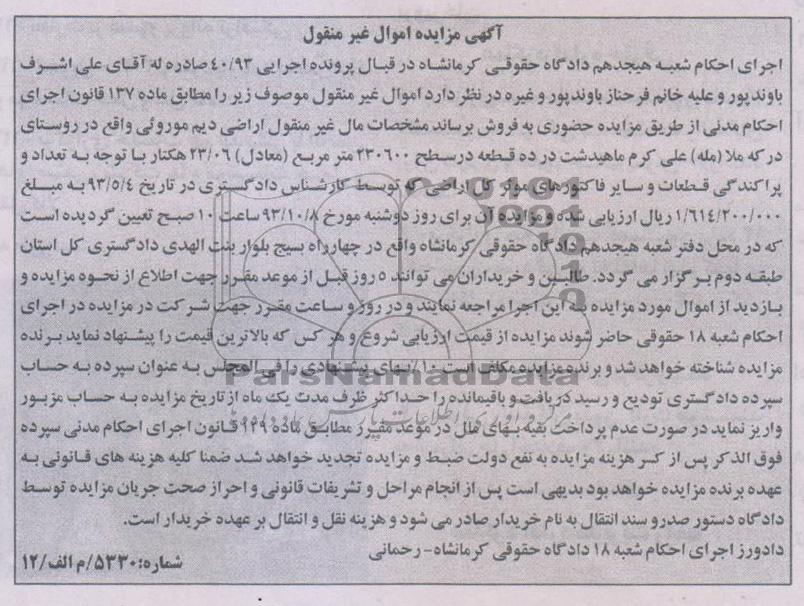 آگهی مزایده اموال غیر منقول
اجرای احکام شعبه هیجدهم دادگاه حقوقی کرمانشاه در قبال پرونده اجرایی ۴۰/۹۳ صادره له آقای علی اشرف
باوندپور و علیه خانم فرحناز باوندپور و غیره در نظر دارد اموال غیر منقول موصوف زیر را مطابق ماده ۱۳۷ قانون اجرای
احکام مدنی از طریق مزایده حضوری به فروش برساند مشخصات مال غیر منقول اراضی دیم موروثی واقع در روستای
درکه ملا (مله) علی کرم ماهیدشت در ده قطعه درسطح ۲۳۰۶۰۰ متر مربع (معادل) ۲۳/۰۶ هکتار با توجه به تعداد و
پراکندگی قطعات و سایر فاکتورهای موثر کل اراضی که توسط کارشناس دادگستری در تاریخ ۹۳/۵/۴ به مبلغ
۱/۶۱۴/۲۰۰/۰۰۰ ریال ارزیابی شده و مزایده آن برای روز دوشنبه مورخ ۹۳/۱۰/۸ ساعت ۱۰ صبح تعیین گردیده است
که در محل دفتر شعبه هیجدهم دادگاه حقوقی کرمانشاه واقع در چهارراه بسیج بلوار بنت الهدی دادگستری کل استان
طبقه دوم برگزار می گردد. طالبین و خریداران می توانند ۵ روز قبل از موعد مقرر جهت اطلاع از نحوه مزایده و
بازدید از اموال مورد مزایده به این اجرا مراجعه نمایند و در روز و ساعت مقرر جهت شرکت در مزایده در اجرای
احکام شعبه ۱۸ حقوقی حاضر شوند مزایده از قیمت ارزیابی شروع و هر کس که بالاترین قیمت را پیشنهاد نماید برنده
مزایده شناخته خواهد شد و برنده مزایده مکلف است ۱۰٪ بهای پیشنهادی را فی المجلس به عنوان سپرده به حساب
سپرده دادگستری تودیع و رسید دریافت و باقیمانده را حداکثر ظرف مدت یک ماه از تاریخ مزایده به حساب مزبور
واریز نماید در صورت عدم پرداخت بقیه بهای مال در موعد مقرر مطابق ماده ۱۲۹ قانون اجرای احکام مدنی سپرده
فوق الذکر پس از کسر هزینه مزایده به نفع دولت ضبط و مزایده تجدید خواهد شد ضمنا کلیه هزینه های قانونی به
عهده برنده مزایده خواهد بود بدیهی است پس از انجام مراحل و تشریفات قانونی و احراز صحت جریان مزایده توسط
دادگاه دستور صدرو سند انتقال به نام خریدار صادر می شود و هزینه نقل و انتقال بر عهده خریدار است.
دادورز اجرای احکام شعبه ۱۸ دادگاه حقوقی کرمانشاه - رحمانی
شماره: ۵۳۳۰/م الف/۱۲
ParsNamadData